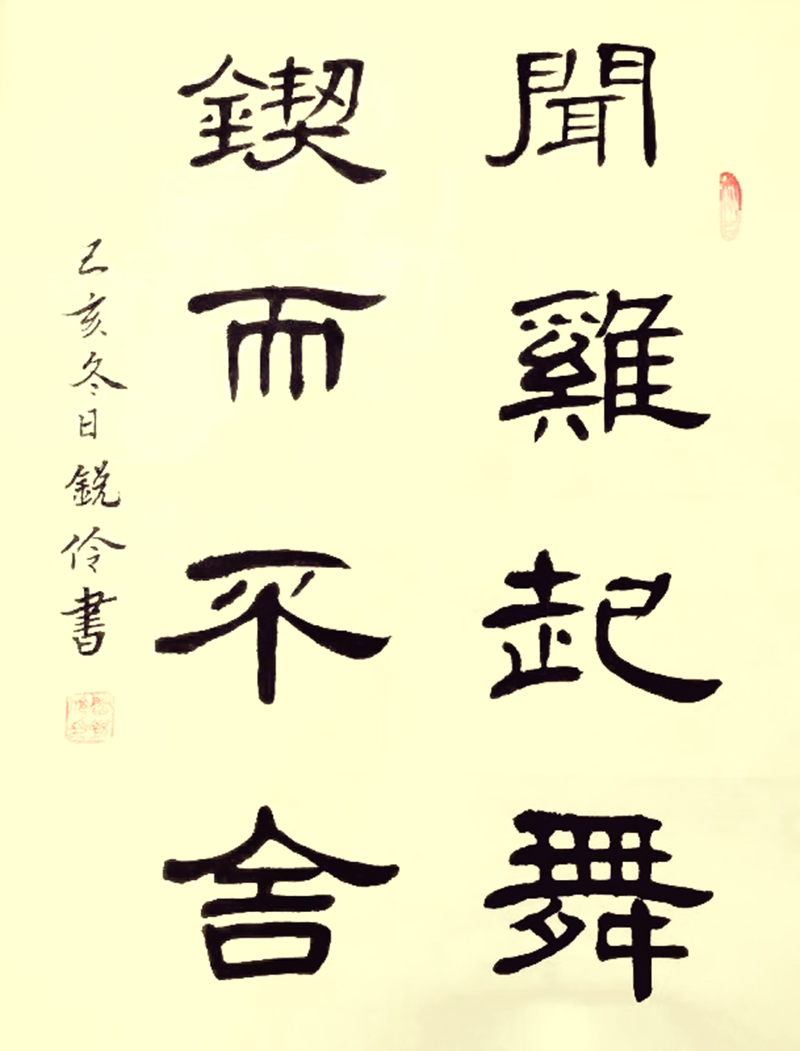 聞雞起舞
鍥而不舍
己亥冬日銳伶書